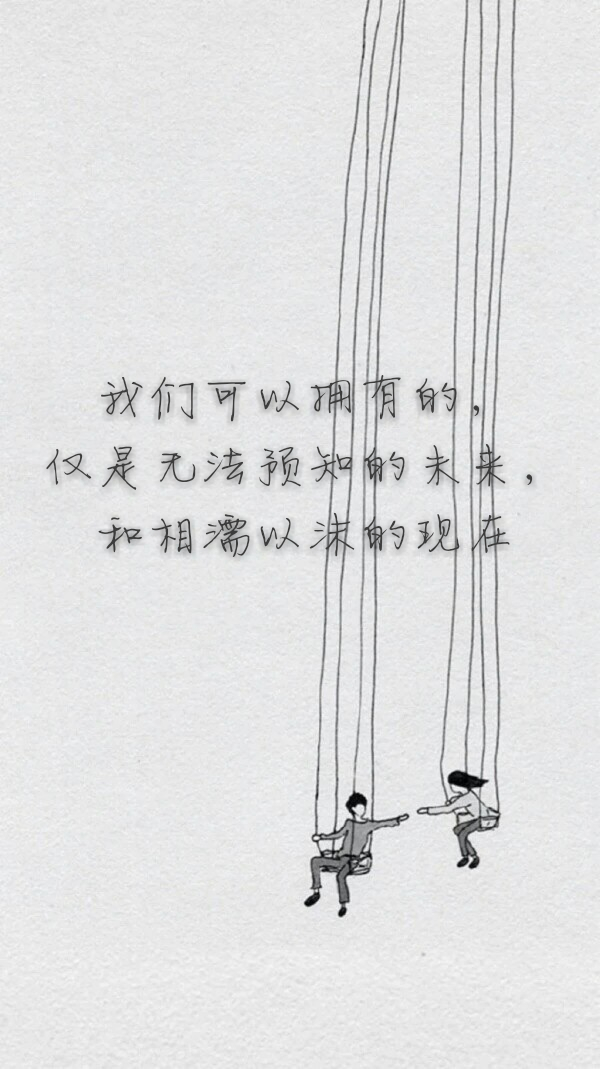 我们可以拥有的，
仅是无法预知的未来，
和相濡以沫的现在